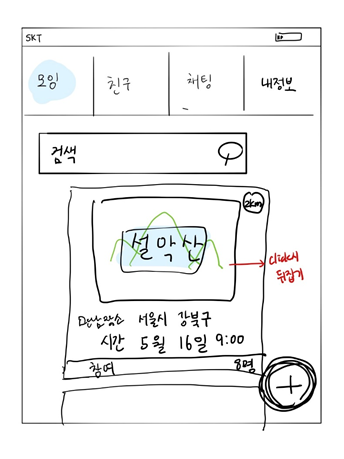 SKT
모임 친구 채팅 내정보
검색
2km
설악산
click시
뒤집기
만남장소 서울시 강북구
시간 5월 16일 9:00
참여 8명
+